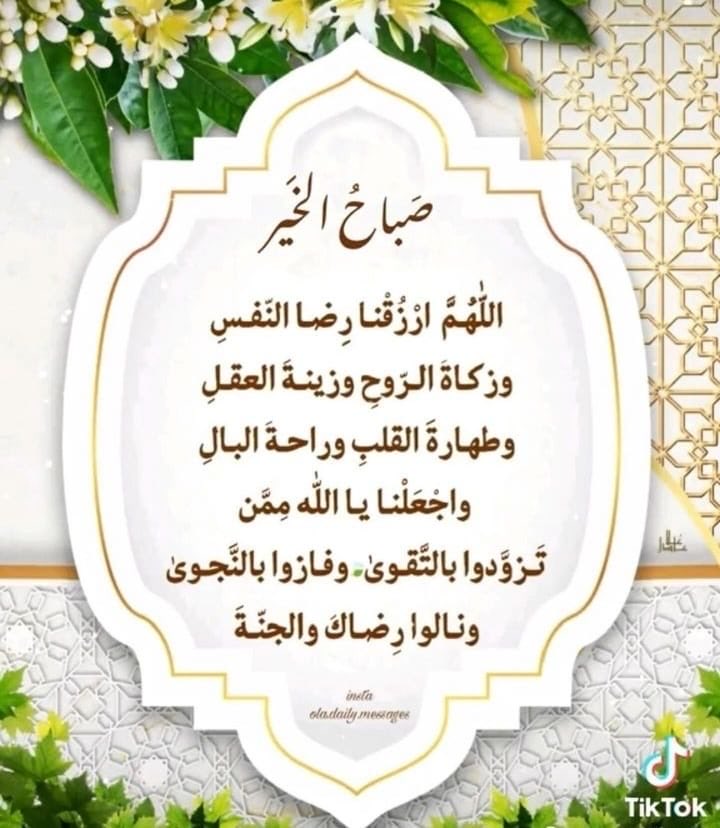 صَباحُ الخَير
اللّٰهُمَّ ارْزُقْنا رِضا النّفسِ
وزكاةَ الرّوحِ وزينةَ العقلِ
وطهارةَ القلبِ وراحةَ البالِ
واجْعَلْنا يا اللّٰه مِمَّن
تَزوَّدوا بالتَّقوىٰ وفازوا بالنَّجوىٰ
ونالوا رِضاكَ والجنّةَ
insta
ola.daily.messages
TikTok